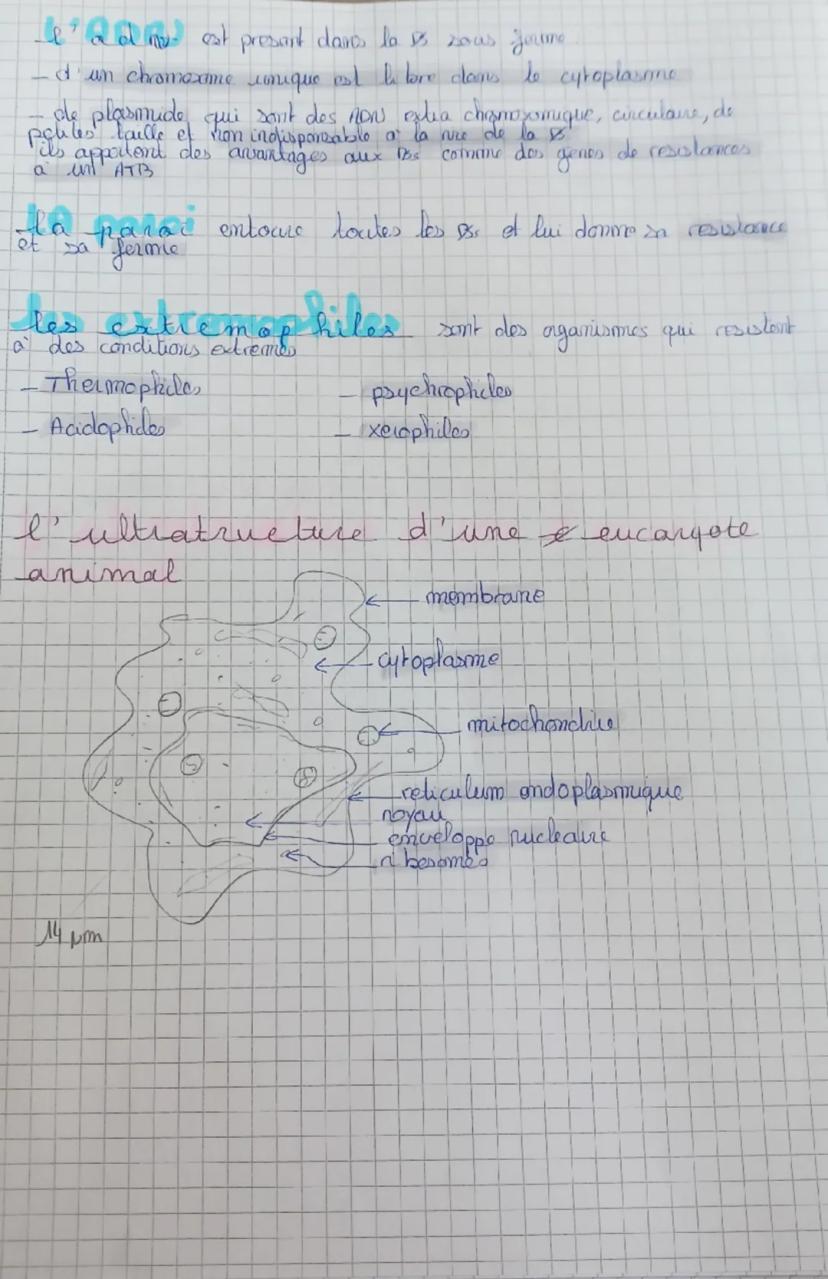 l'ADN est present dans la B sous forme
- d'un chromosome unique est libre dans le cytoplasme
- de plasmide qui sont des ADN extra chromosomique, circulaire, de
petites taille et non indispensable a la vie de la B
ils apportent des avantages aux Bs comme des genes de resistances
a un ATB
la paroi entoure toutes les Bs et lui donne sa resistance
et sa forme
les extremophiles sont des organismes qui resistent
a des conditions extremes
- Thermophiles - psychrophiles
- Acidophiles - xerophiles
l'ultratructure d'une eucaryote
animal
membrane
cytoplasme
mitochondrie
reticulum endoplasmique
noyau
enveloppe nucleaire
ribosomes
14 μm